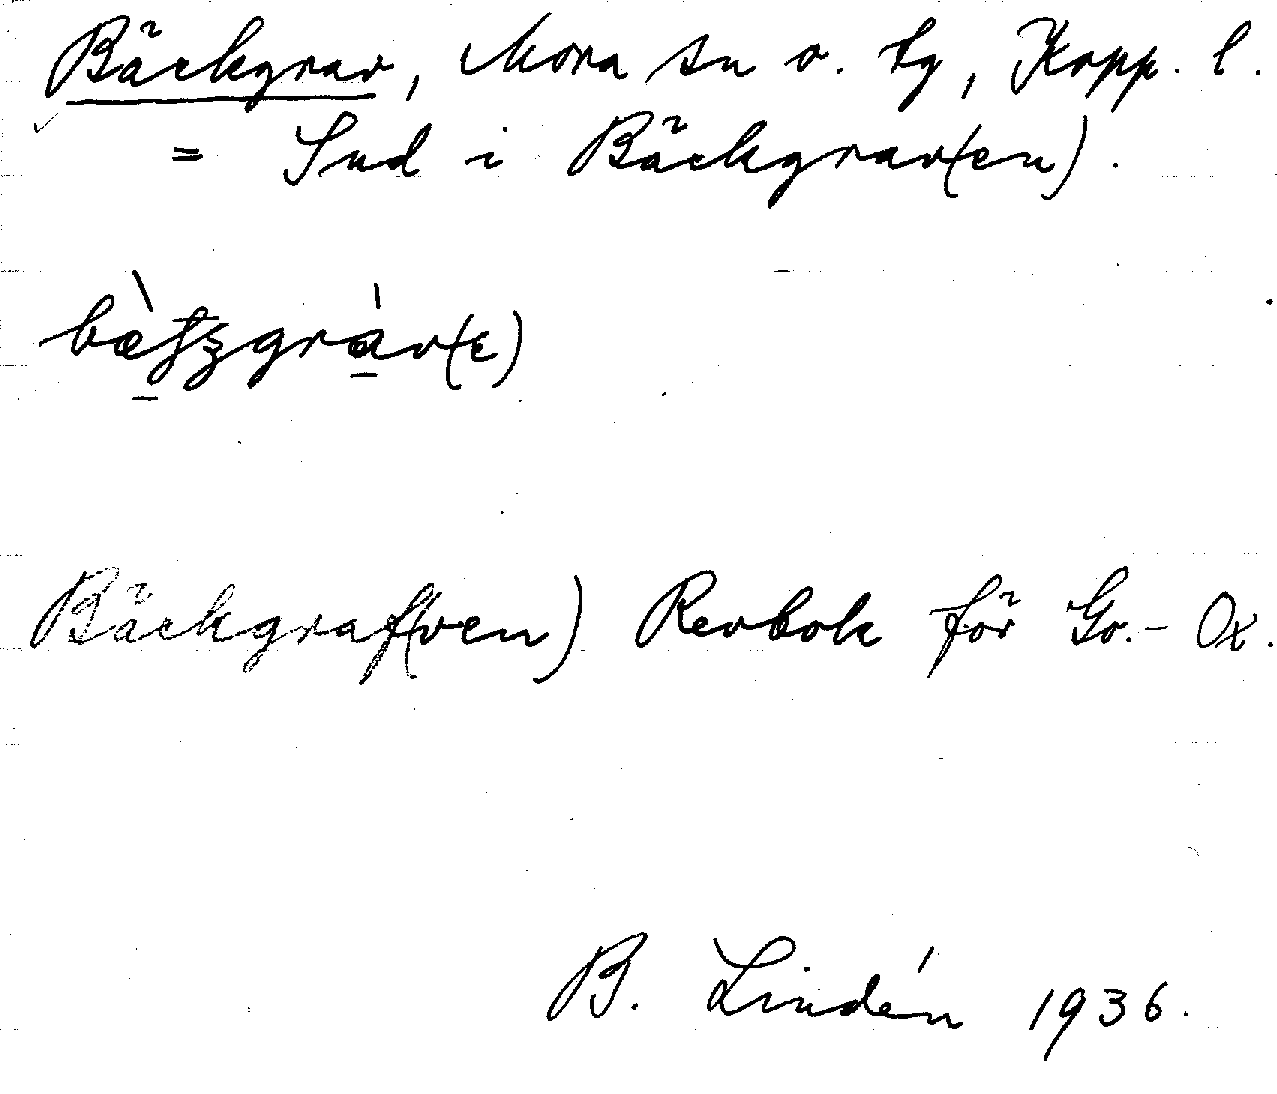 Bäckgrav, Mora sn o. tg, Kopp. l.
= Sud i Bäckgrav(en).
Bäckgraf(ven) Revbok för Go.- Ox.
B. Lindén 1936.